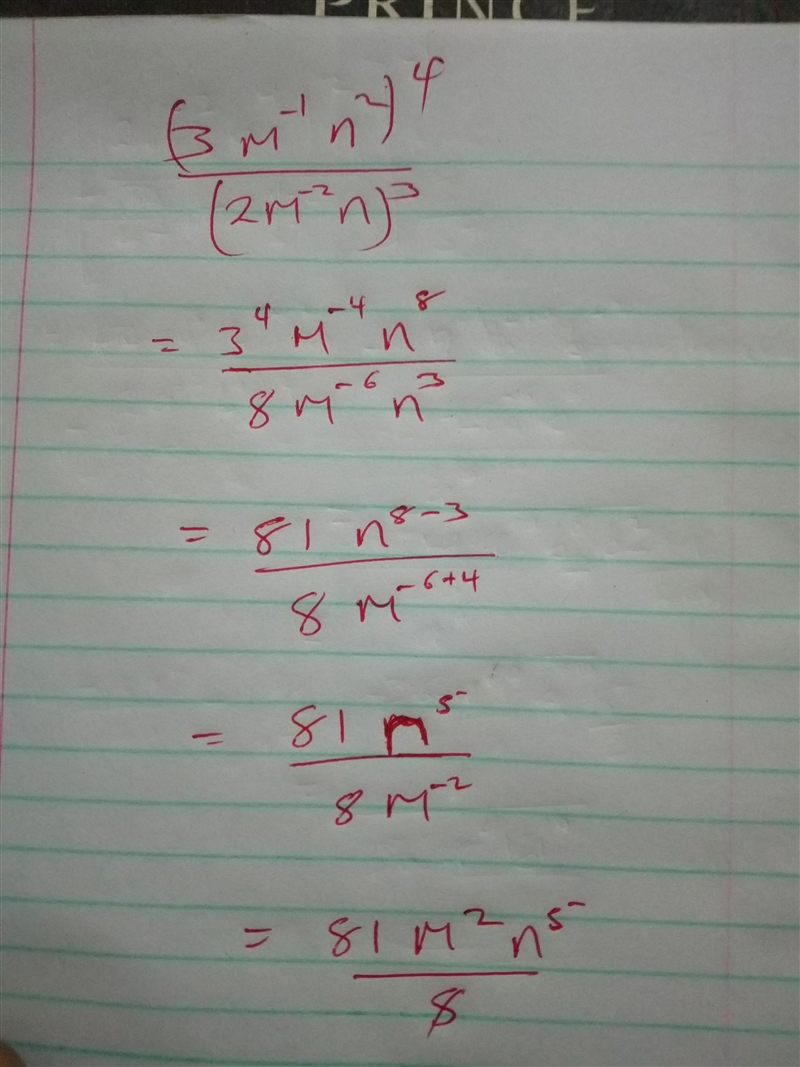 PRINCE
(3 m⁻¹ n²)⁴
(2m⁻²n)³
= 3⁴ m⁻⁴ n⁸
8 m⁻⁶ n³
= 81 n⁸⁻³
8 m⁻⁶⁺⁴
= 81 n⁵
8 m⁻²
= 81 m² n⁵
8